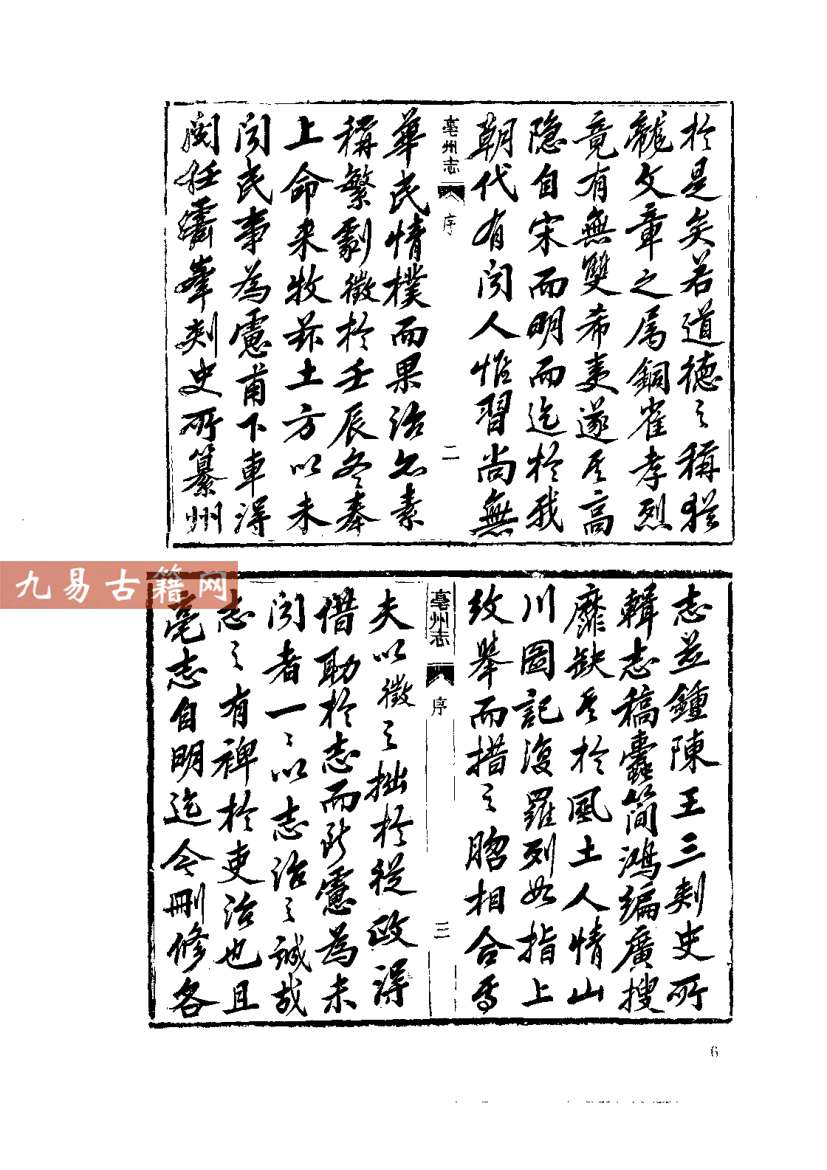 於是矣若道德之稱猶
龍文章之属銅雀孝烈
竟有無雙希夷遂其高
隐自宋而明而迄於我
朝代有闻人惟習尚無
亳州志
序
二
華民情樸而果治亦素
稱繁劇徵於壬辰冬奉
上命来牧兹土方以未
闻民事為慮甫下車得
閲任霽峯刺史所纂州
志並鍾陳王三刺史所
輯志稿囊簡鴻编廣搜
靡缺其於風土人情山
川圖記復羅列如指上
纹舉而措之脗相合焉
亳州志
序
三
夫以徵之拙於從政得
借助於志而所慮為未
闻者一一以志治之誠哉
志之有裨於吏治也且
亳志自明迄今刪修各
九易古籍网
6